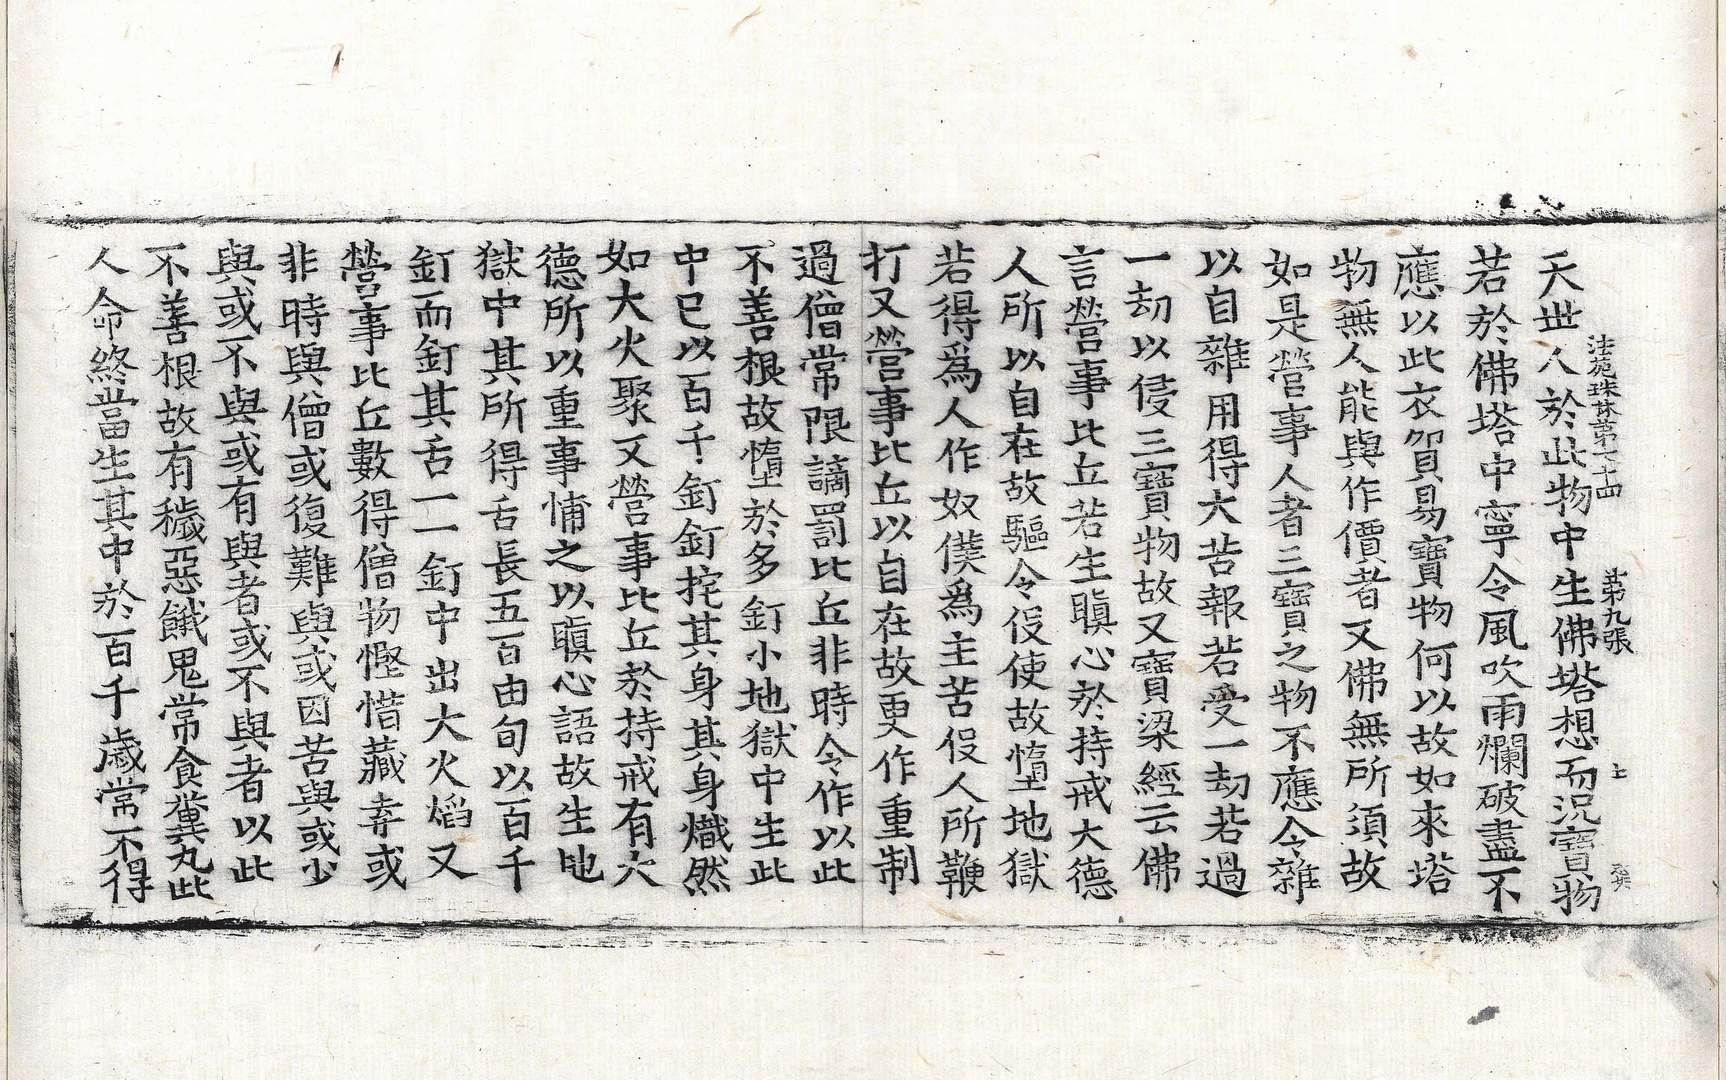 法苑珠林第七十四 第九張 士
天世人於此物中生佛塔想而況寶物
若於佛塔中寧令風吹雨爛破盡不
應以此衣貿易寶物何以故如來塔
物無人能與作價者又佛無所須故
如是營事人者三寶之物不應令雜
以自雜用得大苦報若受一劫若過
一劫以侵三寶物故又寶梁經云佛
言營事比丘若生瞋心於持戒大德
人所以自在故驅令役使故墮地獄
若得爲人作奴僕爲主苦役人所鞭
打又營事比丘以自在故更作重制
過僧常限謫罰比丘非時令作以此
不善根故墮於多釘小地獄中生此
中已以百千釘釘挓其身其身熾然
如大火聚又營事比丘於持戒有大
德所以重事怖之以瞋心語故生地
獄中其所得舌長五百由旬以百千
釘而釘其舌一一釘中出大火焰又
營事比丘數得僧物慳惜藏弆或
非時與僧或復難與或因苦與或少
與或不與或有與者或不與者以此
不善根故有穢惡餓鬼常食糞丸此
人命終當生其中於百千歲常不得